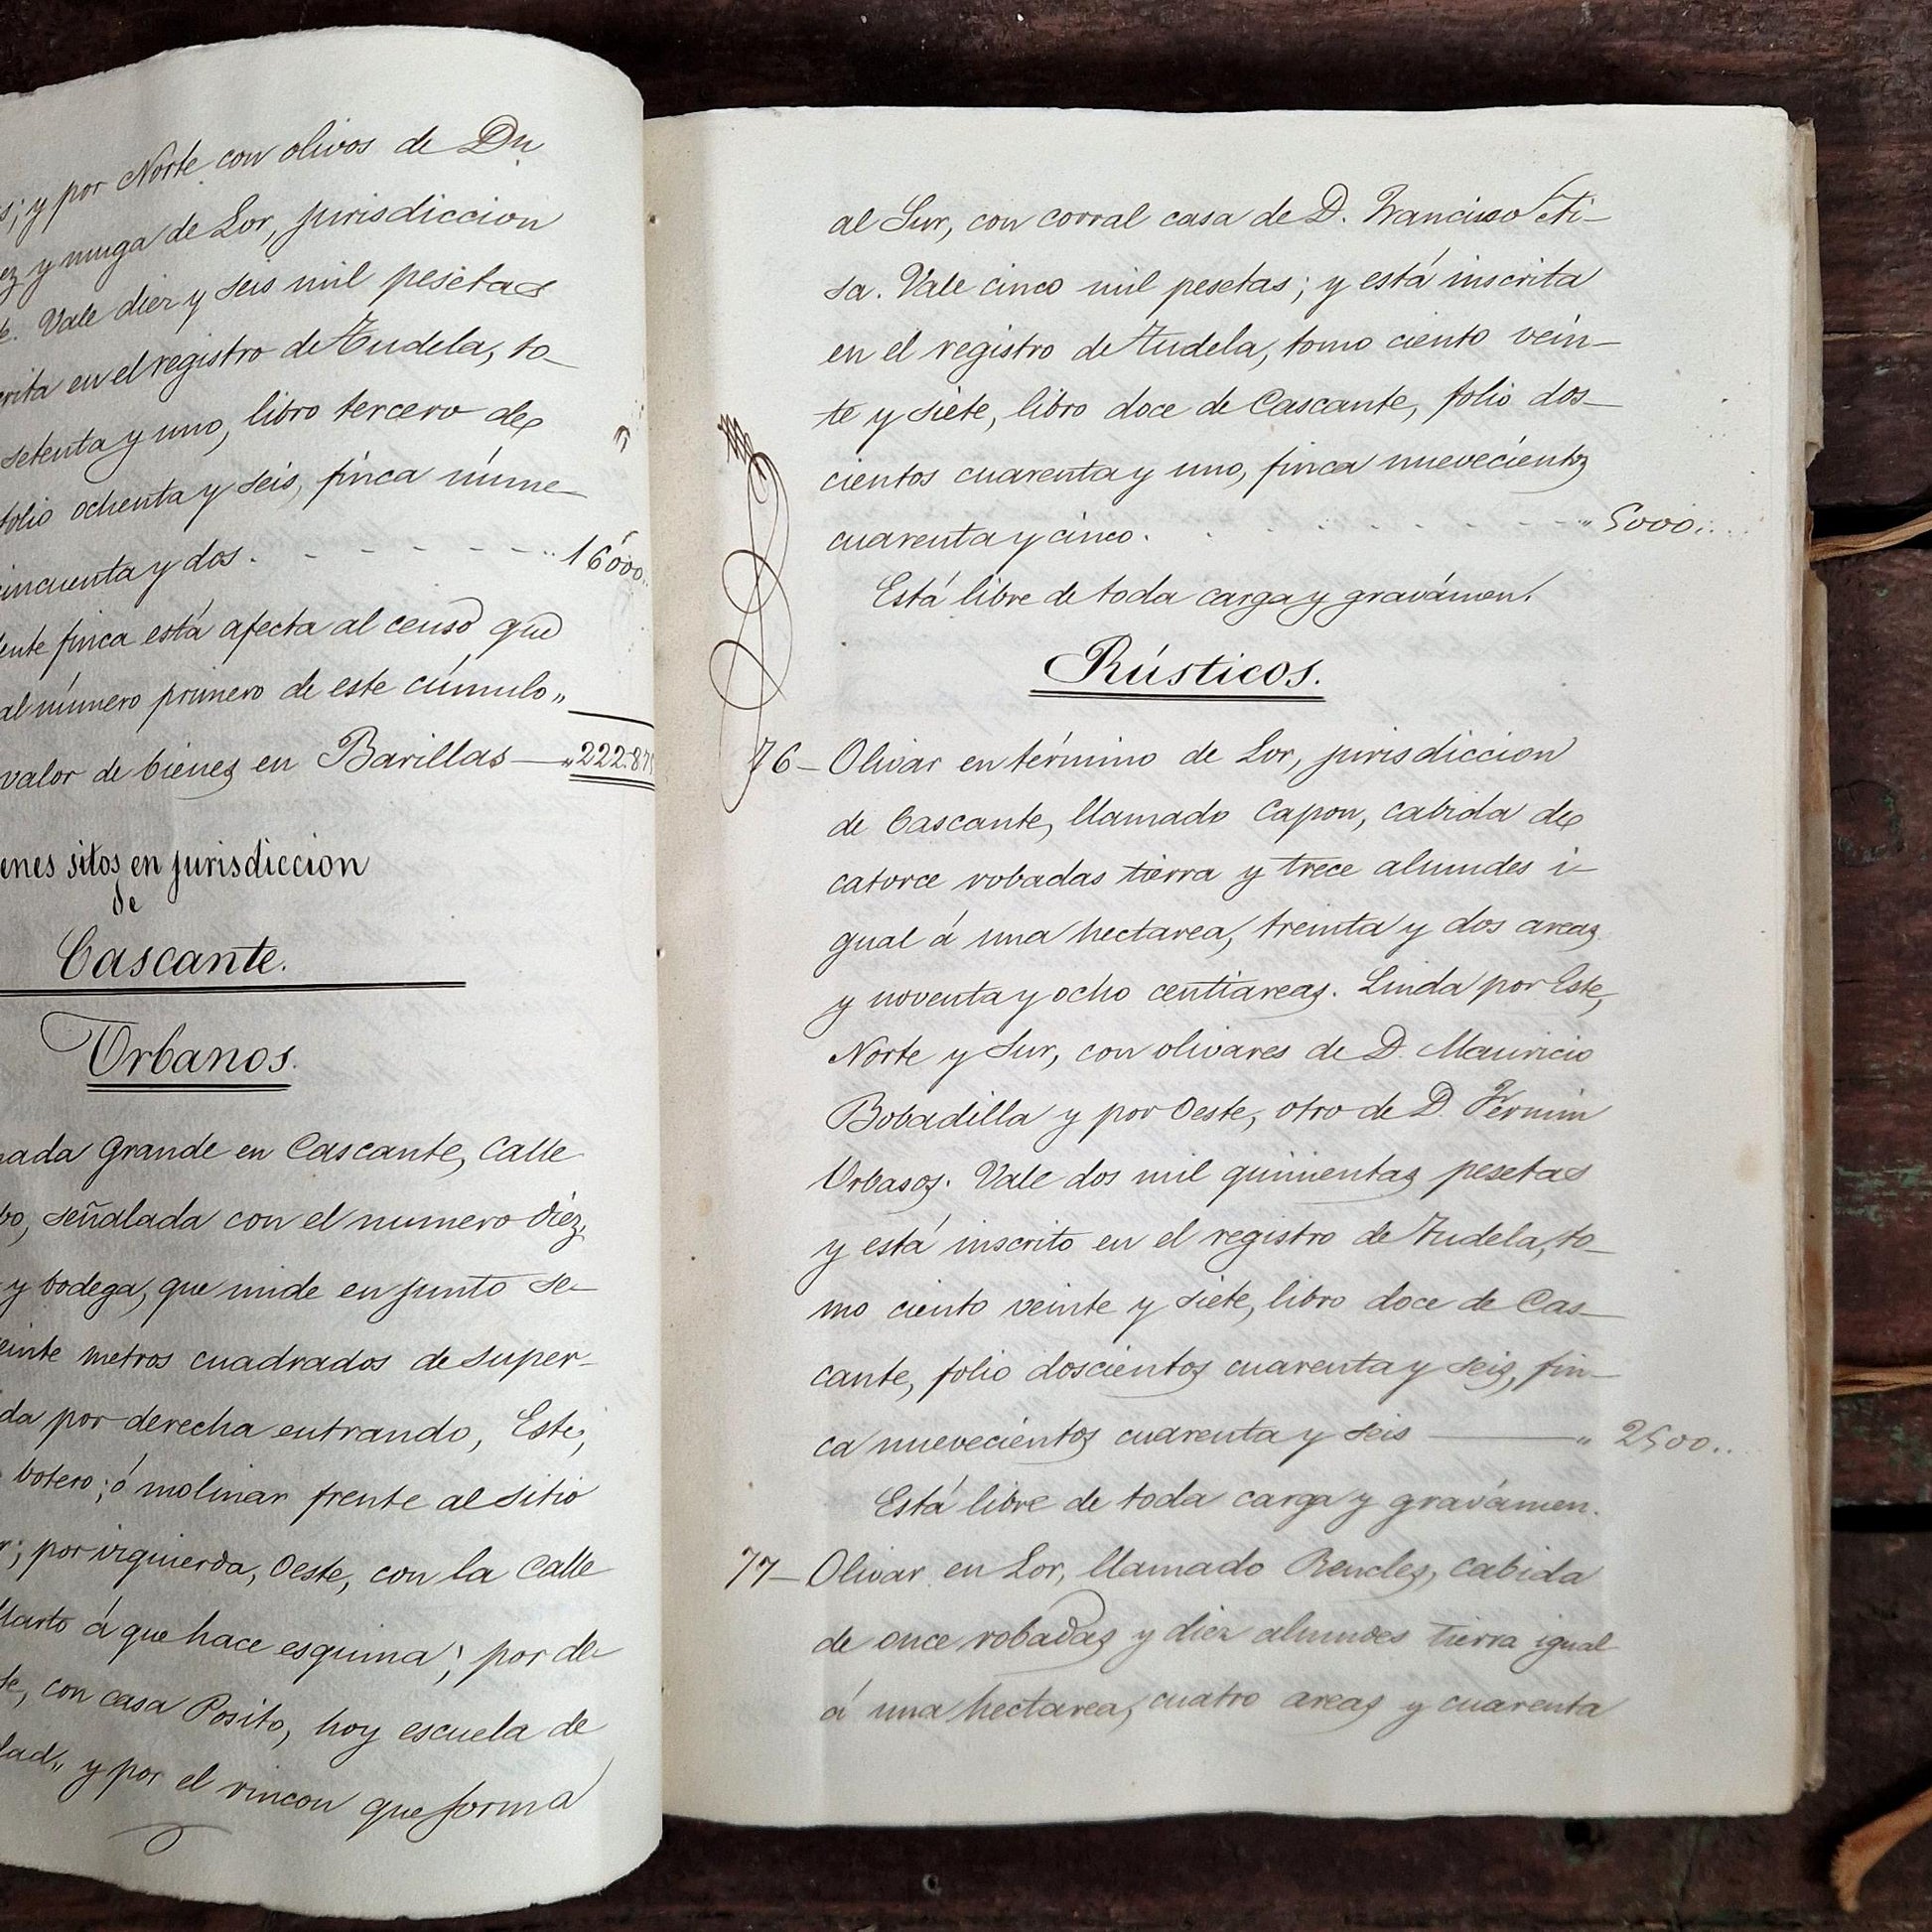 ; y por Norte con olivos de Du
ez y muga de Lor, jurisdiccion
Vale diez y seis mil pesetas
crita en el registro de Tudela, to-
setenta y uno, libro tercero de
folio ochenta y seis, finca núme-
cincuenta y dos. - - - - - - - " 16000..
ente finca está afecta al censo que
al número primero de este cúmulo"
valor de bienes en Barillas — " 222.87
enes sitos en jurisdiccion
de
Cascante.
Urbanos.
ada Grande en Cascante, Calle
bo, señalada con el numero diéz,
y bodega, que mide en junto se-
einte metros cuadrados de super-
da por derecha entrando, Este,
botero; ó molinar frente al sitio
; por izquierda, Oeste, con la Calle
á que hace esquina; por de-
te, con casa Posito, hoy escuela de
dad" y por el rincon que forma
al Sur, con corral casa de D. Francisco Ati-
sa. Vale cinco mil pesetas; y está inscrita
en el registro de Tudela, tomo ciento vein-
te y siete, libro doce de Cascante, folio dos-
cientos cuarenta y uno, finca nuevecientos
cuarenta y cinco. - - - - - - - - " 5000..
Está libre de toda carga y gravámen.
Rústicos.
76- Olivar en término de Lor, jurisdiccion
de Cascante, llamado Capon, cabida de
catorce robadas tierra y trece almudes i-
gual á una hectarea, treinta y dos areas
y noventa y ocho centiareas. Linda por Este,
Norte y Sur, con olivares de D. Mauricio
Bobadilla y por Oeste, otro de D. Fermin
Urbasos. Vale dos mil quinientas pesetas
y está inscrito en el registro de Tudela, to-
mo ciento veinte y siete, libro doce de Cas-
cante, folio doscientos cuarenta y seis, fin-
ca nuevecientos cuarenta y seis — " 2500..
Está libre de toda carga y gravámen.
77- Olivar en Lor, llamado Rencles, cabida
de once robadas y diez almudes tierra igual
á una hectarea, cuatro areas y cuarenta